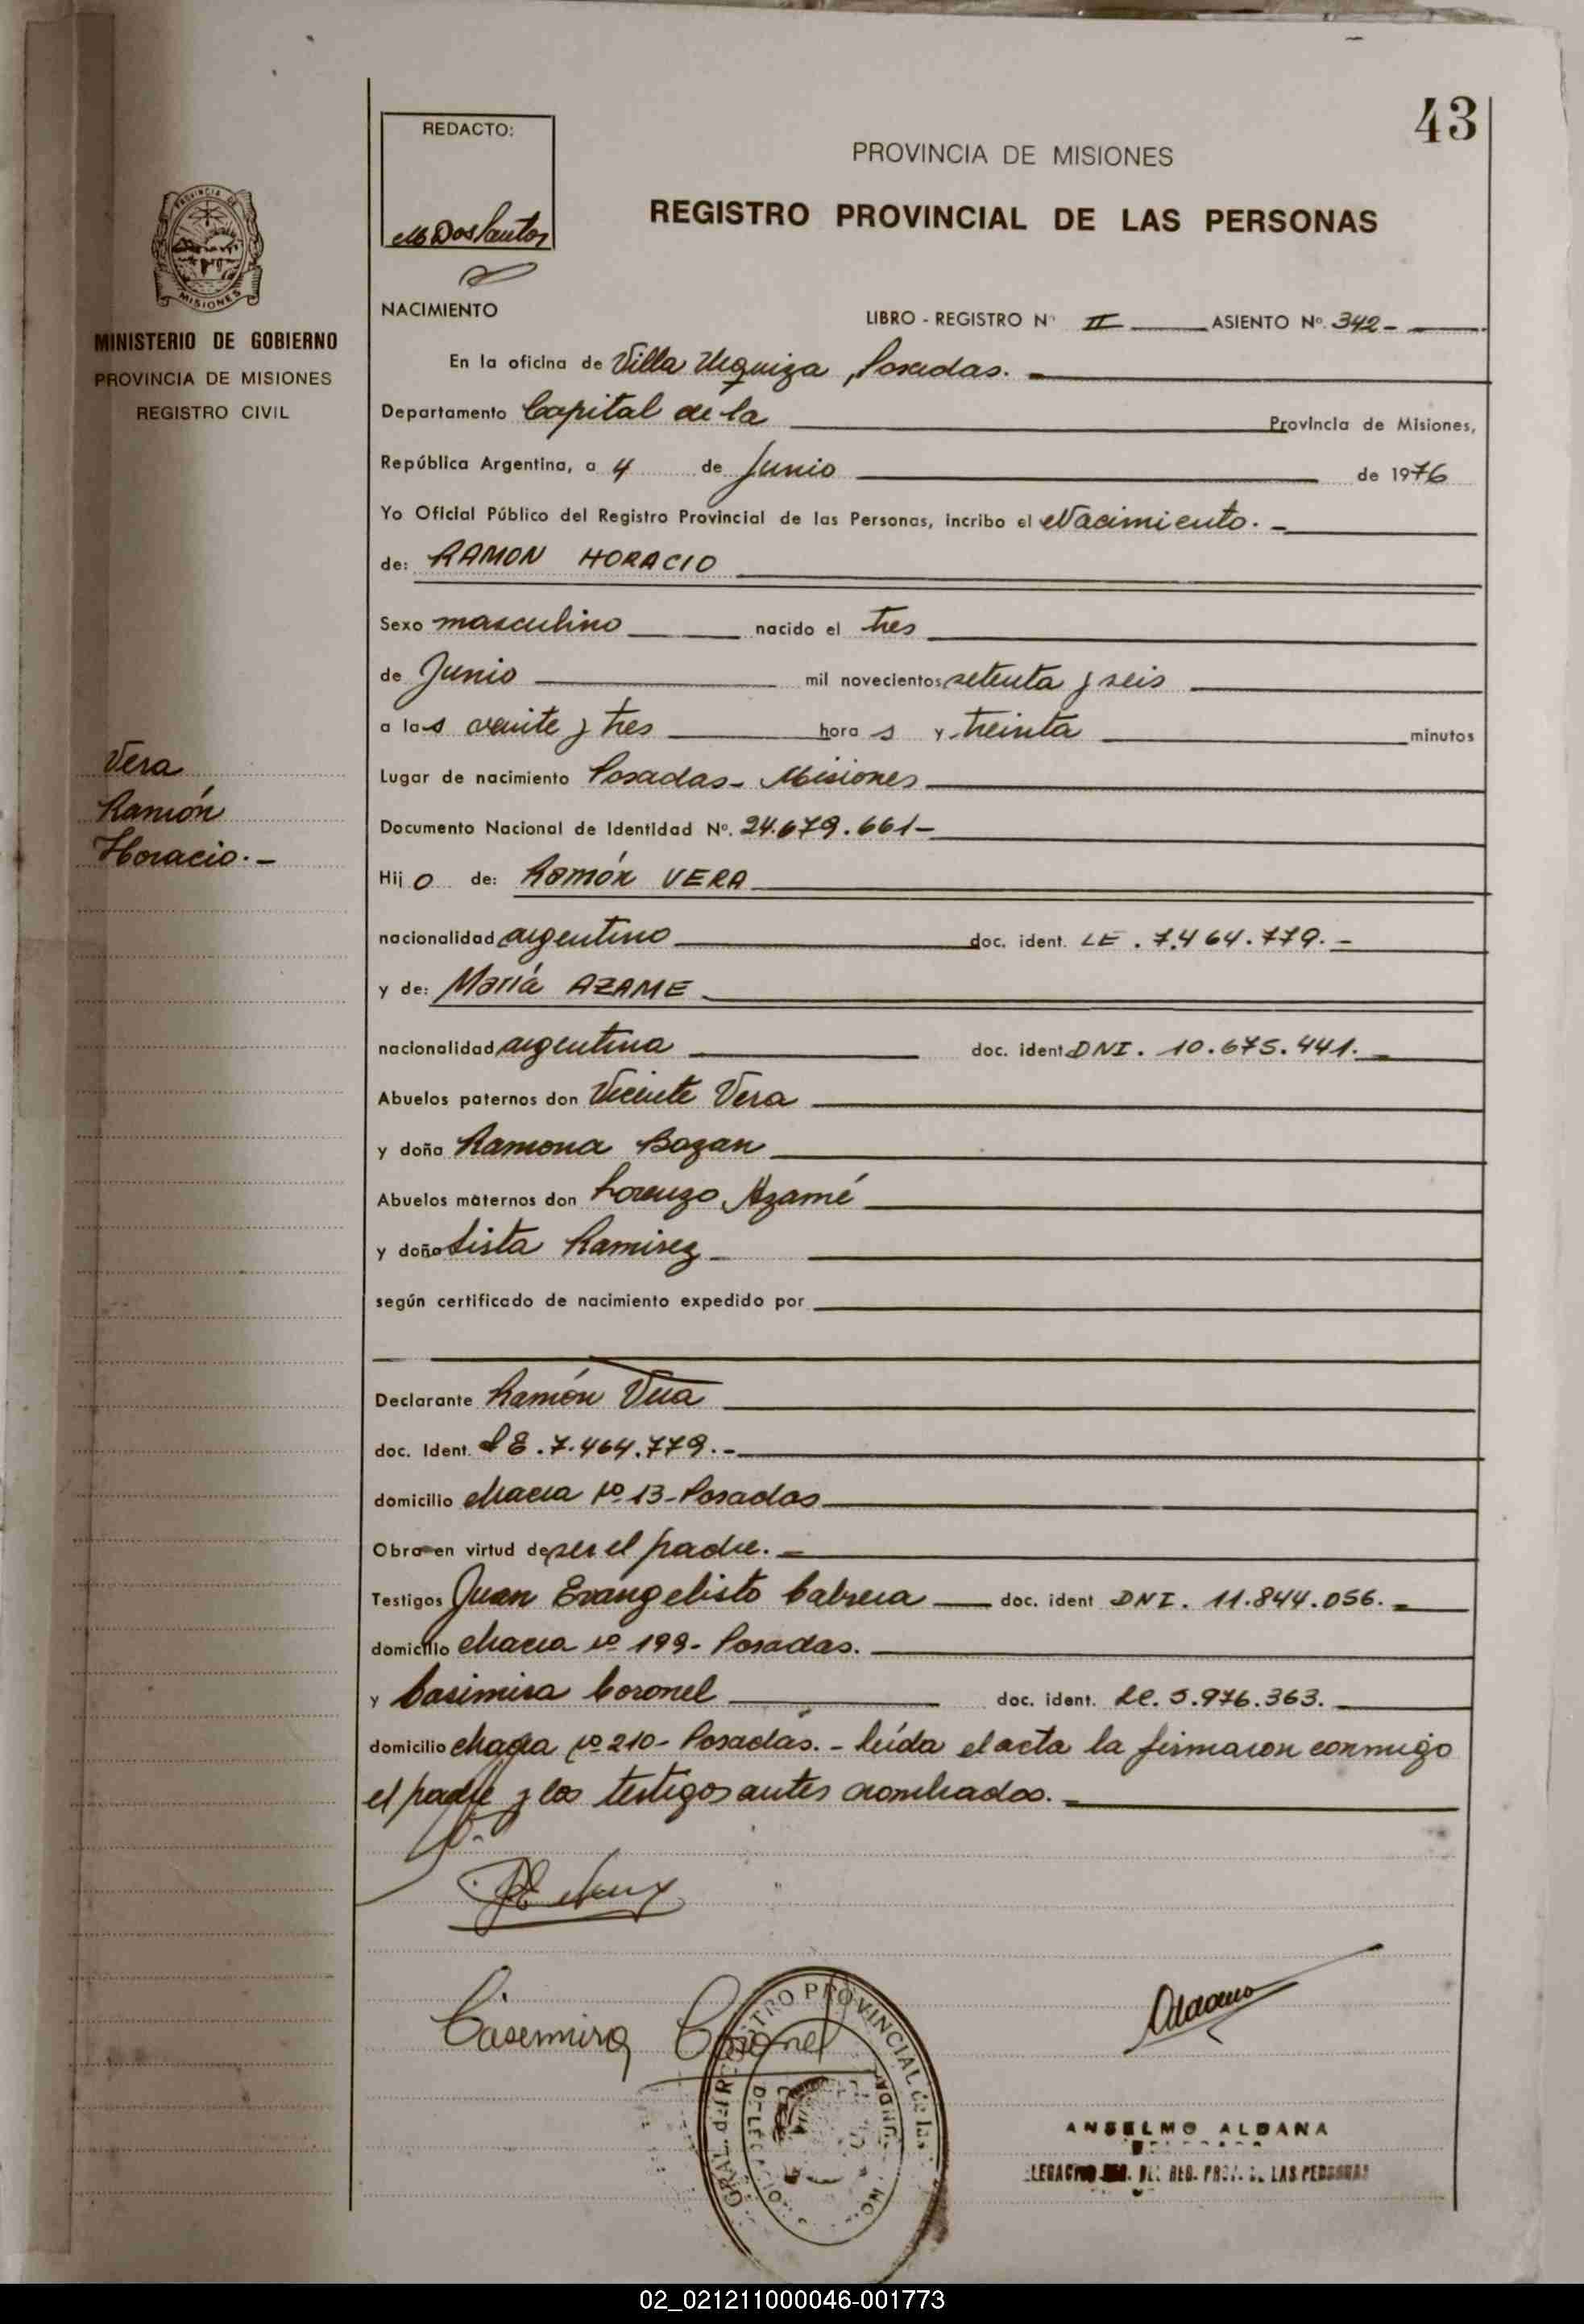 43
REDACTO:
M Dos Santos
PROVINCIA DE MISIONES
REGISTRO PROVINCIAL DE LAS PERSONAS
PROVINCIA DE
MISIONES
MINISTERIO DE GOBIERNO
PROVINCIA DE MISIONES
REGISTRO CIVIL
Vera
Ramón
Horacio.-
NACIMIENTO
LIBRO - REGISTRO Nº II ASIENTO Nº. 342-
En la oficina de Villa Urquiza, Posadas.-
Departamento Capital de la Provincia de Misiones,
República Argentina, a 4 de Junio de 1976
Yo Oficial Público del Registro Provincial de las Personas, incribo el Nacimiento.-
de: RAMON HORACIO
Sexo masculino nacido el tres
de Junio mil novecientos setenta y seis
a las veinte y tres hora s y treinta minutos
Lugar de nacimiento Posadas- Misiones
Documento Nacional de Identidad Nº. 24.679.661-
Hij o de: Ramón VERA
nacionalidad argentino doc. ident. LE. 7.464.779.-
y de: María AZAME
nacionalidad argentina doc. ident DNI. 10.675.441.-
Abuelos paternos don Vicente Vera
y doña Ramona Bazan
Abuelos maternos don Lorenzo Azamé
y doña Sista Ramirez
según certificado de nacimiento expedido por
Declarante Ramón Vera
doc. Ident. LE. 7.464.779.-
domicilio chacra Nº 13-Posadas
Obra en virtud de ser el padre.-
Testigos Juan Evangelisto Cabrera doc. ident DNI. 11.844.056.-
domicilio chacra Nº 199- Posadas.
y Casimira Coronel doc. ident. LC. 5.976.363.
domicilio chacra Nº 210- Posadas.- leída el acta la firmaron conmigo
el padre y los testigos antes nombrados.-
Casemira Coronel
GRAL. del REGISTRO PROVINCIAL de las
ANSELMO ALDANA
REG. PROV. LAS PERSONAS
02_021211000046-001773